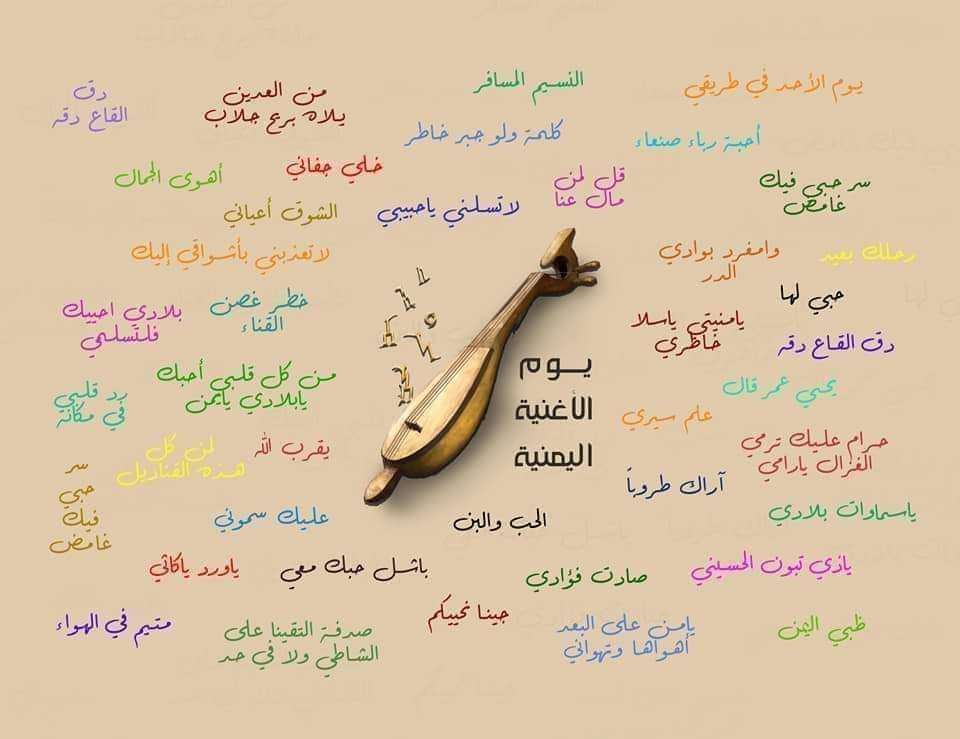 يوم الأحد في طريقي
النسيم المسافر
من العدين
يلاه بريح جلاب
دق
القاع دقه
أحبة رباء صنعاء
كلمة ولو جبر خاطر
سر حبي فيك
غامض
قل لمن
مال عنا
خلي جفاني
أهوى الجمال
لاتسلني ياحبيبي
الشوق أعياني
رحلك بعيد
وامفرد بوادي
الدر
لاتعذبني بأشواقي إليك
حبي لها
يامنيتي ياسلا
خاطري
خطر غصن
القناء
بلادي احييك
فلتسلمي
دق القاع دقه
يوم
الأغنية
اليمنية
يحيى عمر قال
علم سيري
من كل قلبي أحبك
يابلادي يايمن
رد قلبي
في مكانه
حرام عليك ترمي
الغزال يارامي
يقرب الله
لمن كل
هذه القناديل
سر
حبي
فيك
غامض
آراك طروباً
ياسماوات بلادي
الحب والبن
عليك سموني
ياذي تبون الحسيني
صادت فؤادي
باشل حبك معي
ياورد ياكاذي
ظبي اليمن
يامن على البعد
أهواها وتهواني
جينا نحييكم
صدفة التقينا على
الشاطي ولا في حد
متيم في الهواء